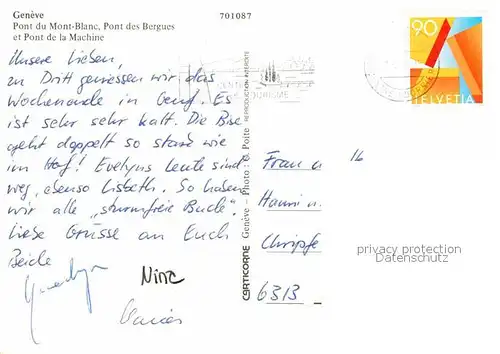 Genève 701087
Pont du Mont-Blanc, Pont des Bergues
et Pont de la Machine
Unsere Lieben,
zu Dritt geniessen wir das
Wochenende in Genf. Es
ist sehr sehr kalt. Die Bise
geht doppelt so stark wie
im Hof! Evelyns Leute sind
weg, ebenso Lisbeth. So haben
wir alle „sturmfreie Bude".
Liebe Grüsse an Euch
Beide
Nina
CARTICORNE Genève - Photo: Poite REPRODUCTION INTERDITE
90
HELVETIA
Frau u 16
Hanni u.
6313
privacy protection
Datenschutz